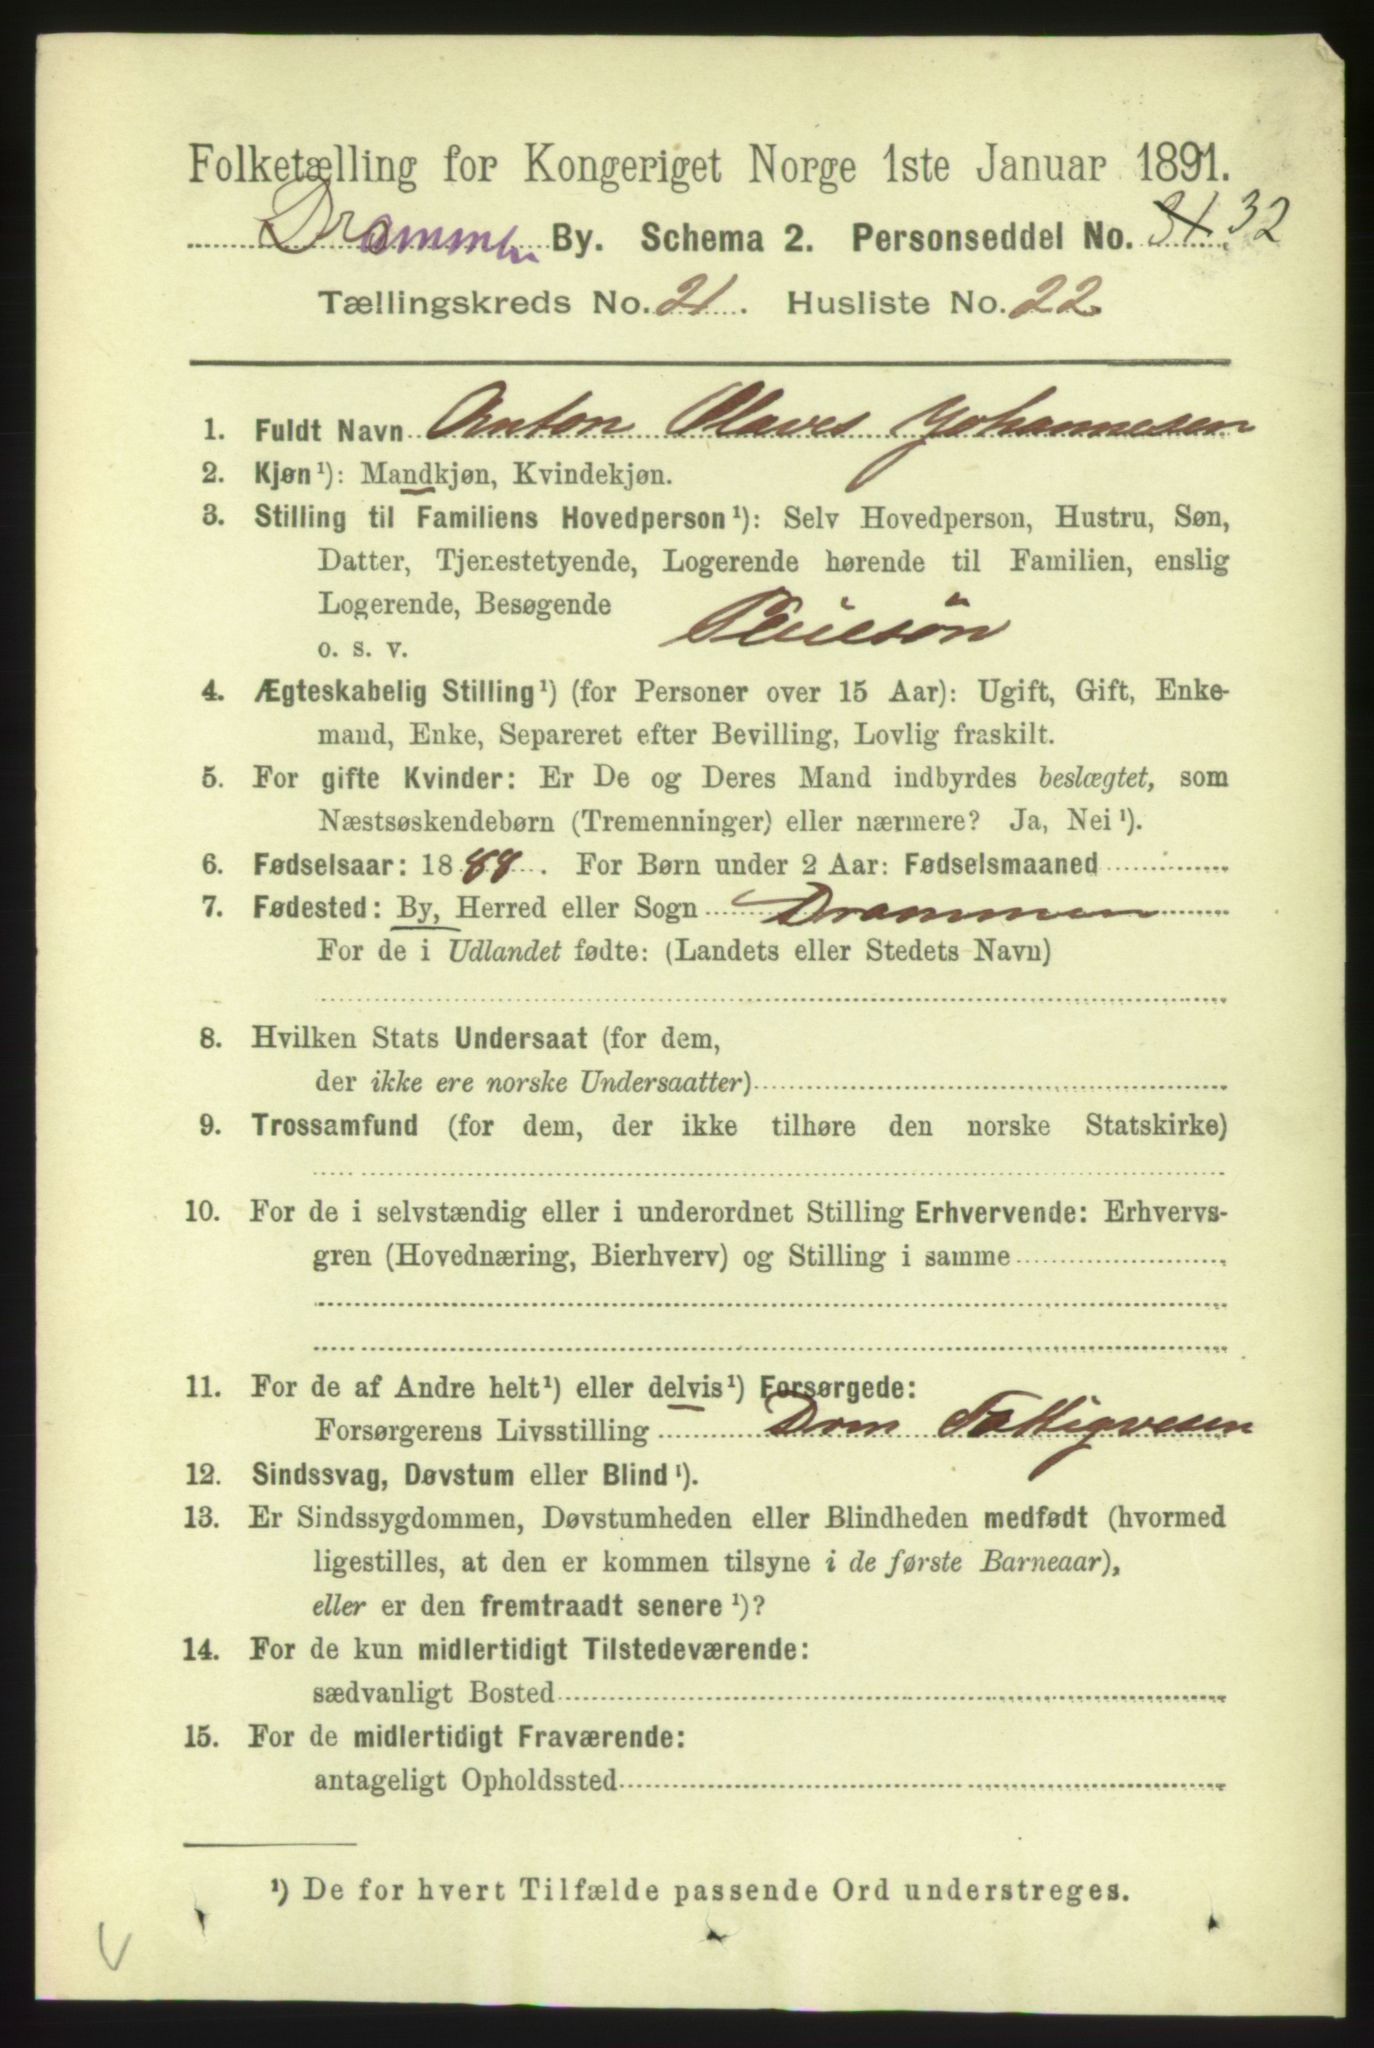 Folketælling for Kongeriget Norge 1ste Januar 1891.
Drammen By. Schema 2. Personseddel No. 31. 32
Tællingskreds No. 21. Husliste No. 22
1. Fuldt Navn Anton Olaves Johannesen
2. Kjøn¹): Mandkjøn, Kvindekjøn.
3. Stilling til Familiens Hovedperson¹): Selv Hovedperson, Hustru, Søn,
Datter, Tjenestetyende, Logerende hørende til Familien, enslig
Logerende, Besøgende
o. s. v. Pleiesøn
4. Ægteskabelig Stilling¹) (for Personer over 15 Aar): Ugift, Gift, Enke-
mand, Enke, Separeret efter Bevilling, Lovlig fraskilt.
5. For gifte Kvinder: Er De og Deres Mand indbyrdes beslægtet, som
Næstsøskendebørn (Tremenninger) eller nærmere? Ja, Nei¹).
6. Fødselsaar: 1888. For Børn under 2 Aar: Fødselsmaaned
7. Fødested: By, Herred eller Sogn Drammen
For de i Udlandet fødte: (Landets eller Stedets Navn)
8. Hvilken Stats Undersaat (for dem,
der ikke ere norske Undersaatter)
9. Trossamfund (for dem, der ikke tilhøre den norske Statskirke)
10. For de i selvstændig eller i underordnet Stilling Erhvervende: Erhvervs-
gren (Hovednæring, Bierhverv) og Stilling i samme
11. For de af Andre helt¹) eller delvis¹) Forsørgede:
Forsørgerens Livsstilling Drm Fattigvesen
12. Sindssvag, Døvstum eller Blind¹).
13. Er Sindssygdommen, Døvstumheden eller Blindheden medfødt (hvormed
ligestilles, at den er kommen tilsyne i de første Barneaar),
eller er den fremtraadt senere¹)?
14. For de kun midlertidigt Tilstedeværende:
sædvanligt Bosted
15. For de midlertidigt Fraværende:
antageligt Opholdssted
¹) De for hvert Tilfælde passende Ord understreges.